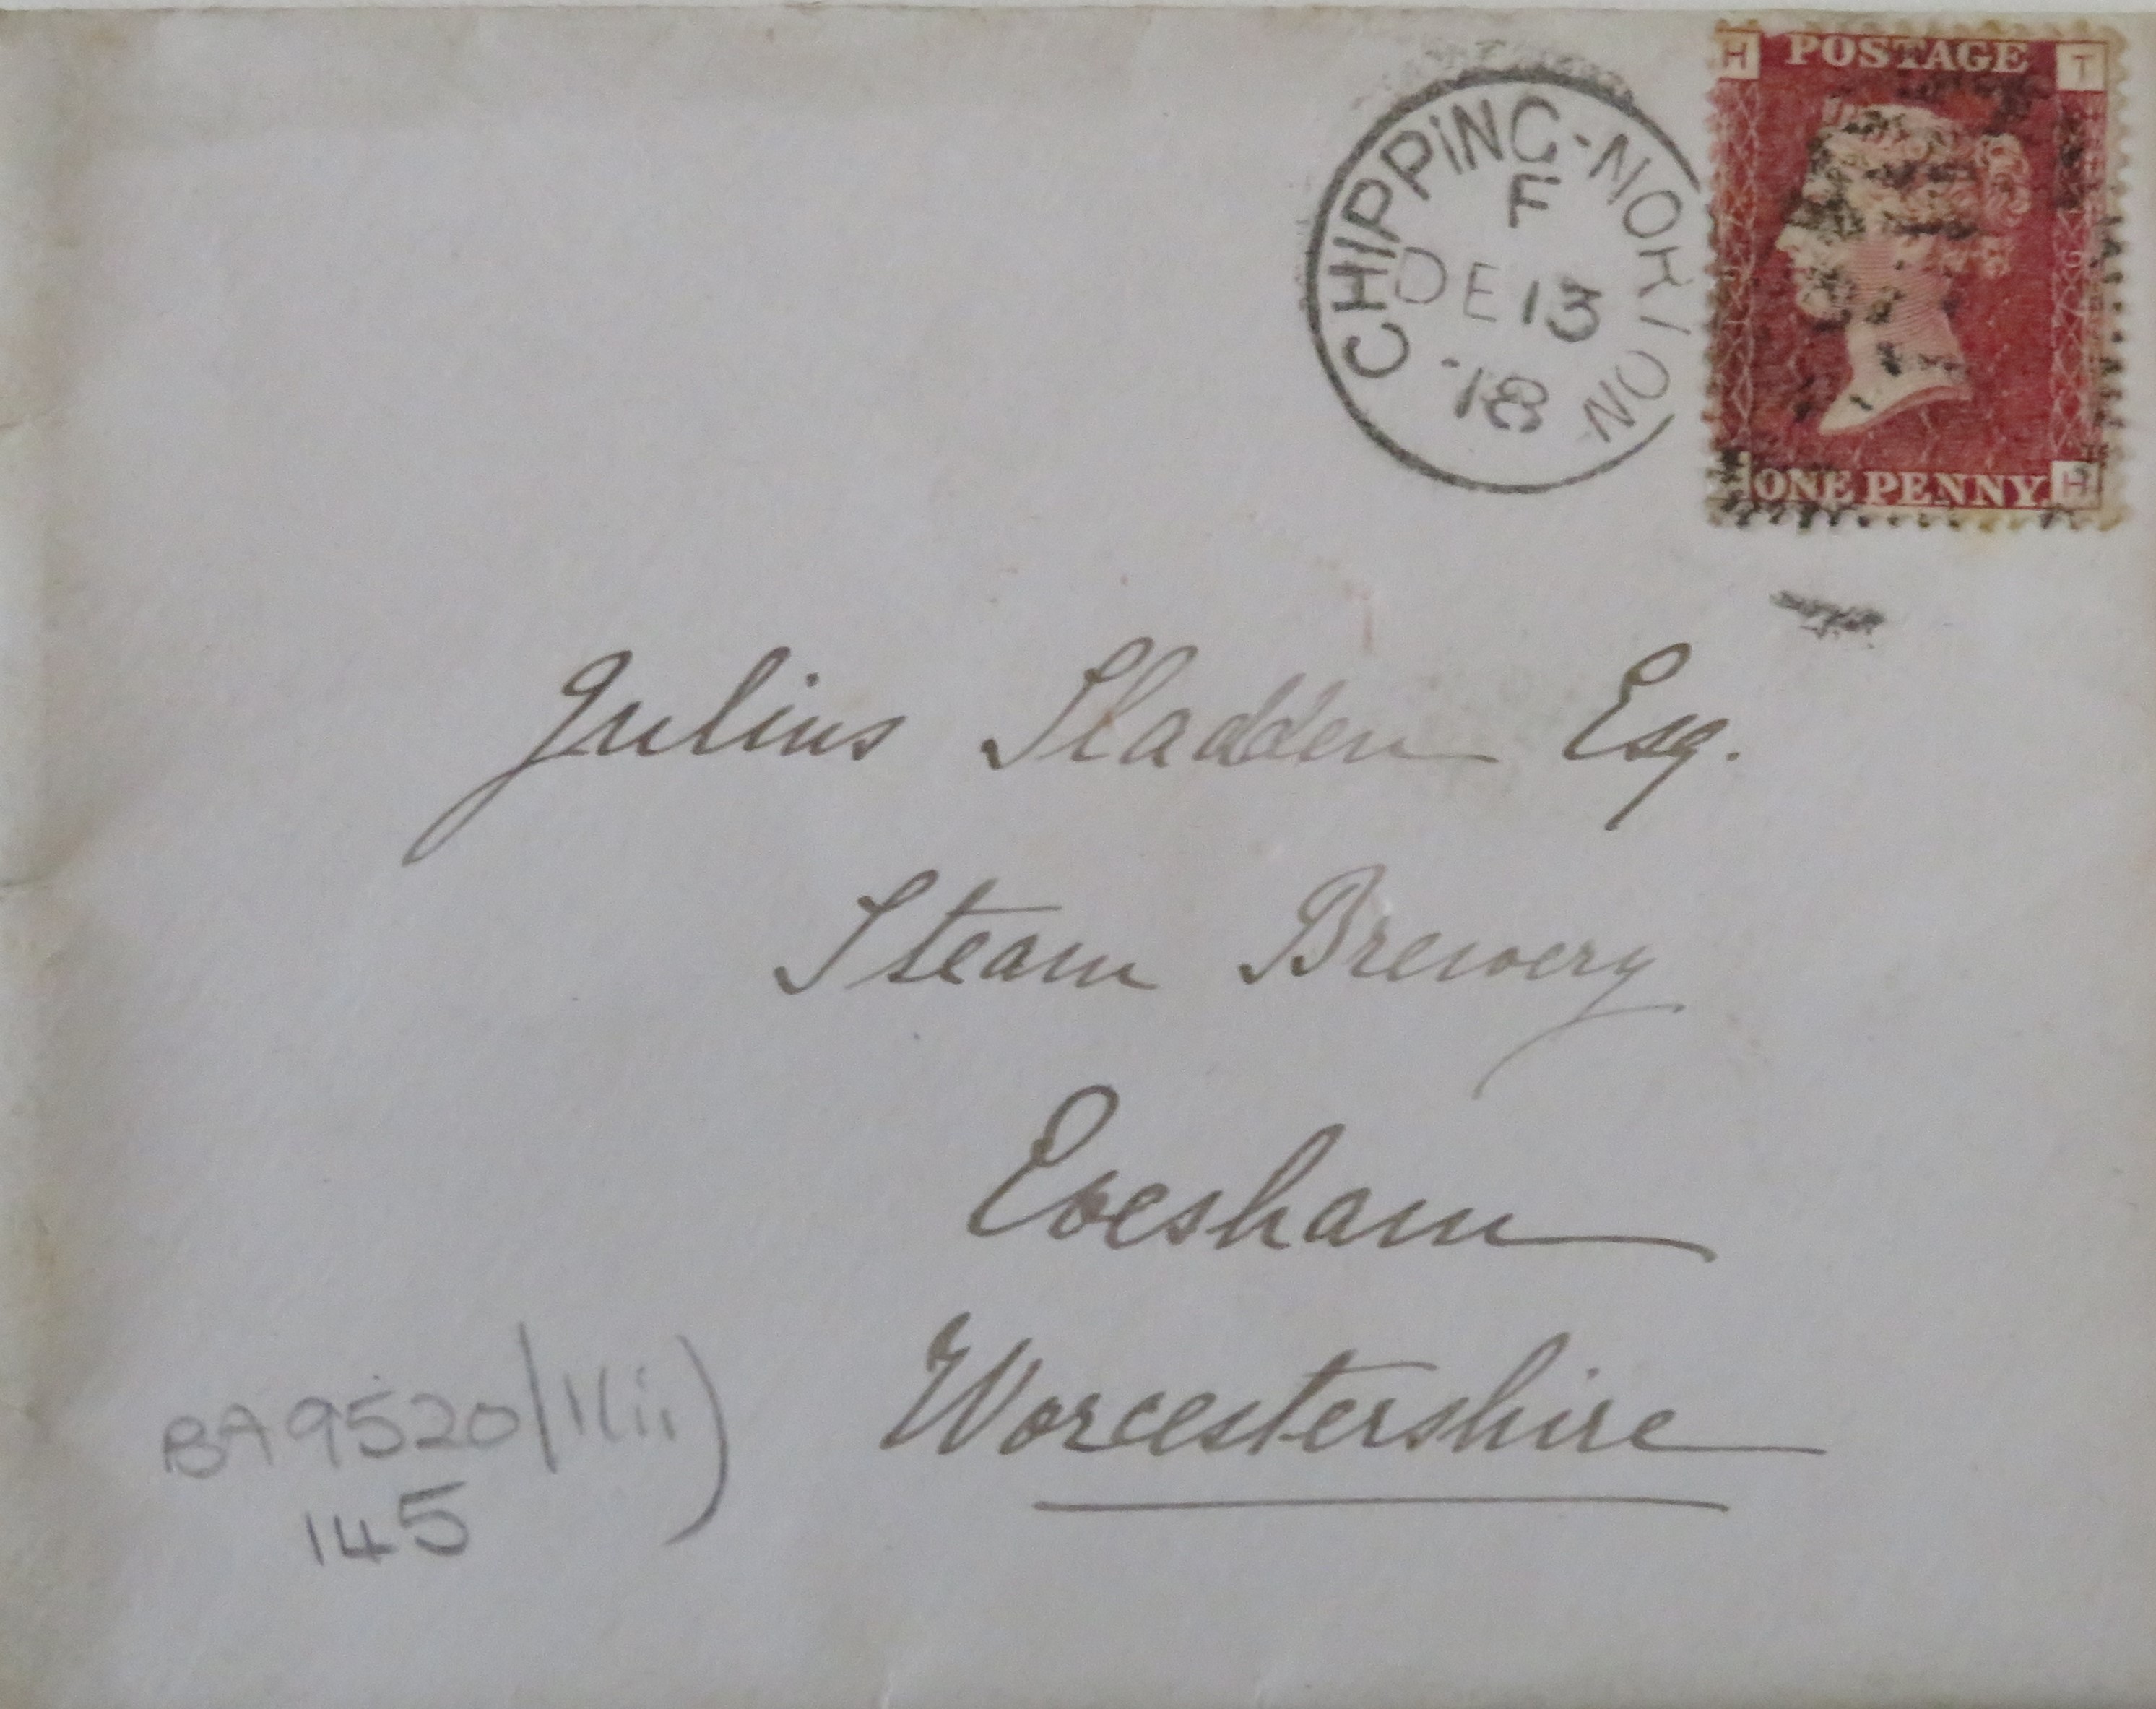 H POSTAGE T
ONE PENNY H
CHIPPING-NORTON
F
DE 13
78
Julius Sladden Esq.
Steam Brewery
Evesham
Worcestershire
BA9520/1(ii)
145